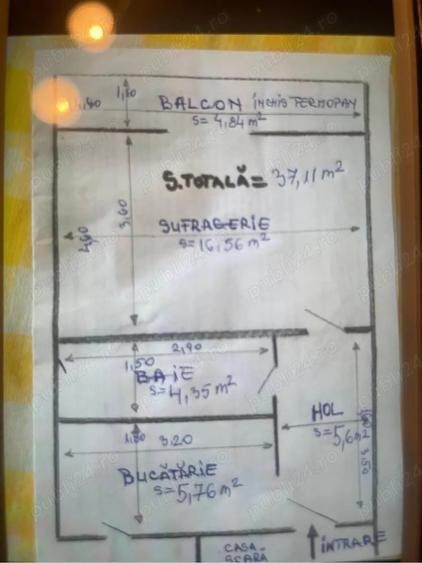 1,10
4,40
BALCON ÎNCHIS TERMOPAN
S= 4,84 m²
S.TOTALĂ = 37,11 m²
3,60
SUFRAGERIE
4,60
S= 16,56 m²
2,90
1,50
BAIE
S= 4,35 m²
HOL
S= 5,6 m²
1,80
3,20
3,50
BUCĂTĂRIE
S= 5,76 m²
CASA
SCARĂ
INTRARE
publi24.ro